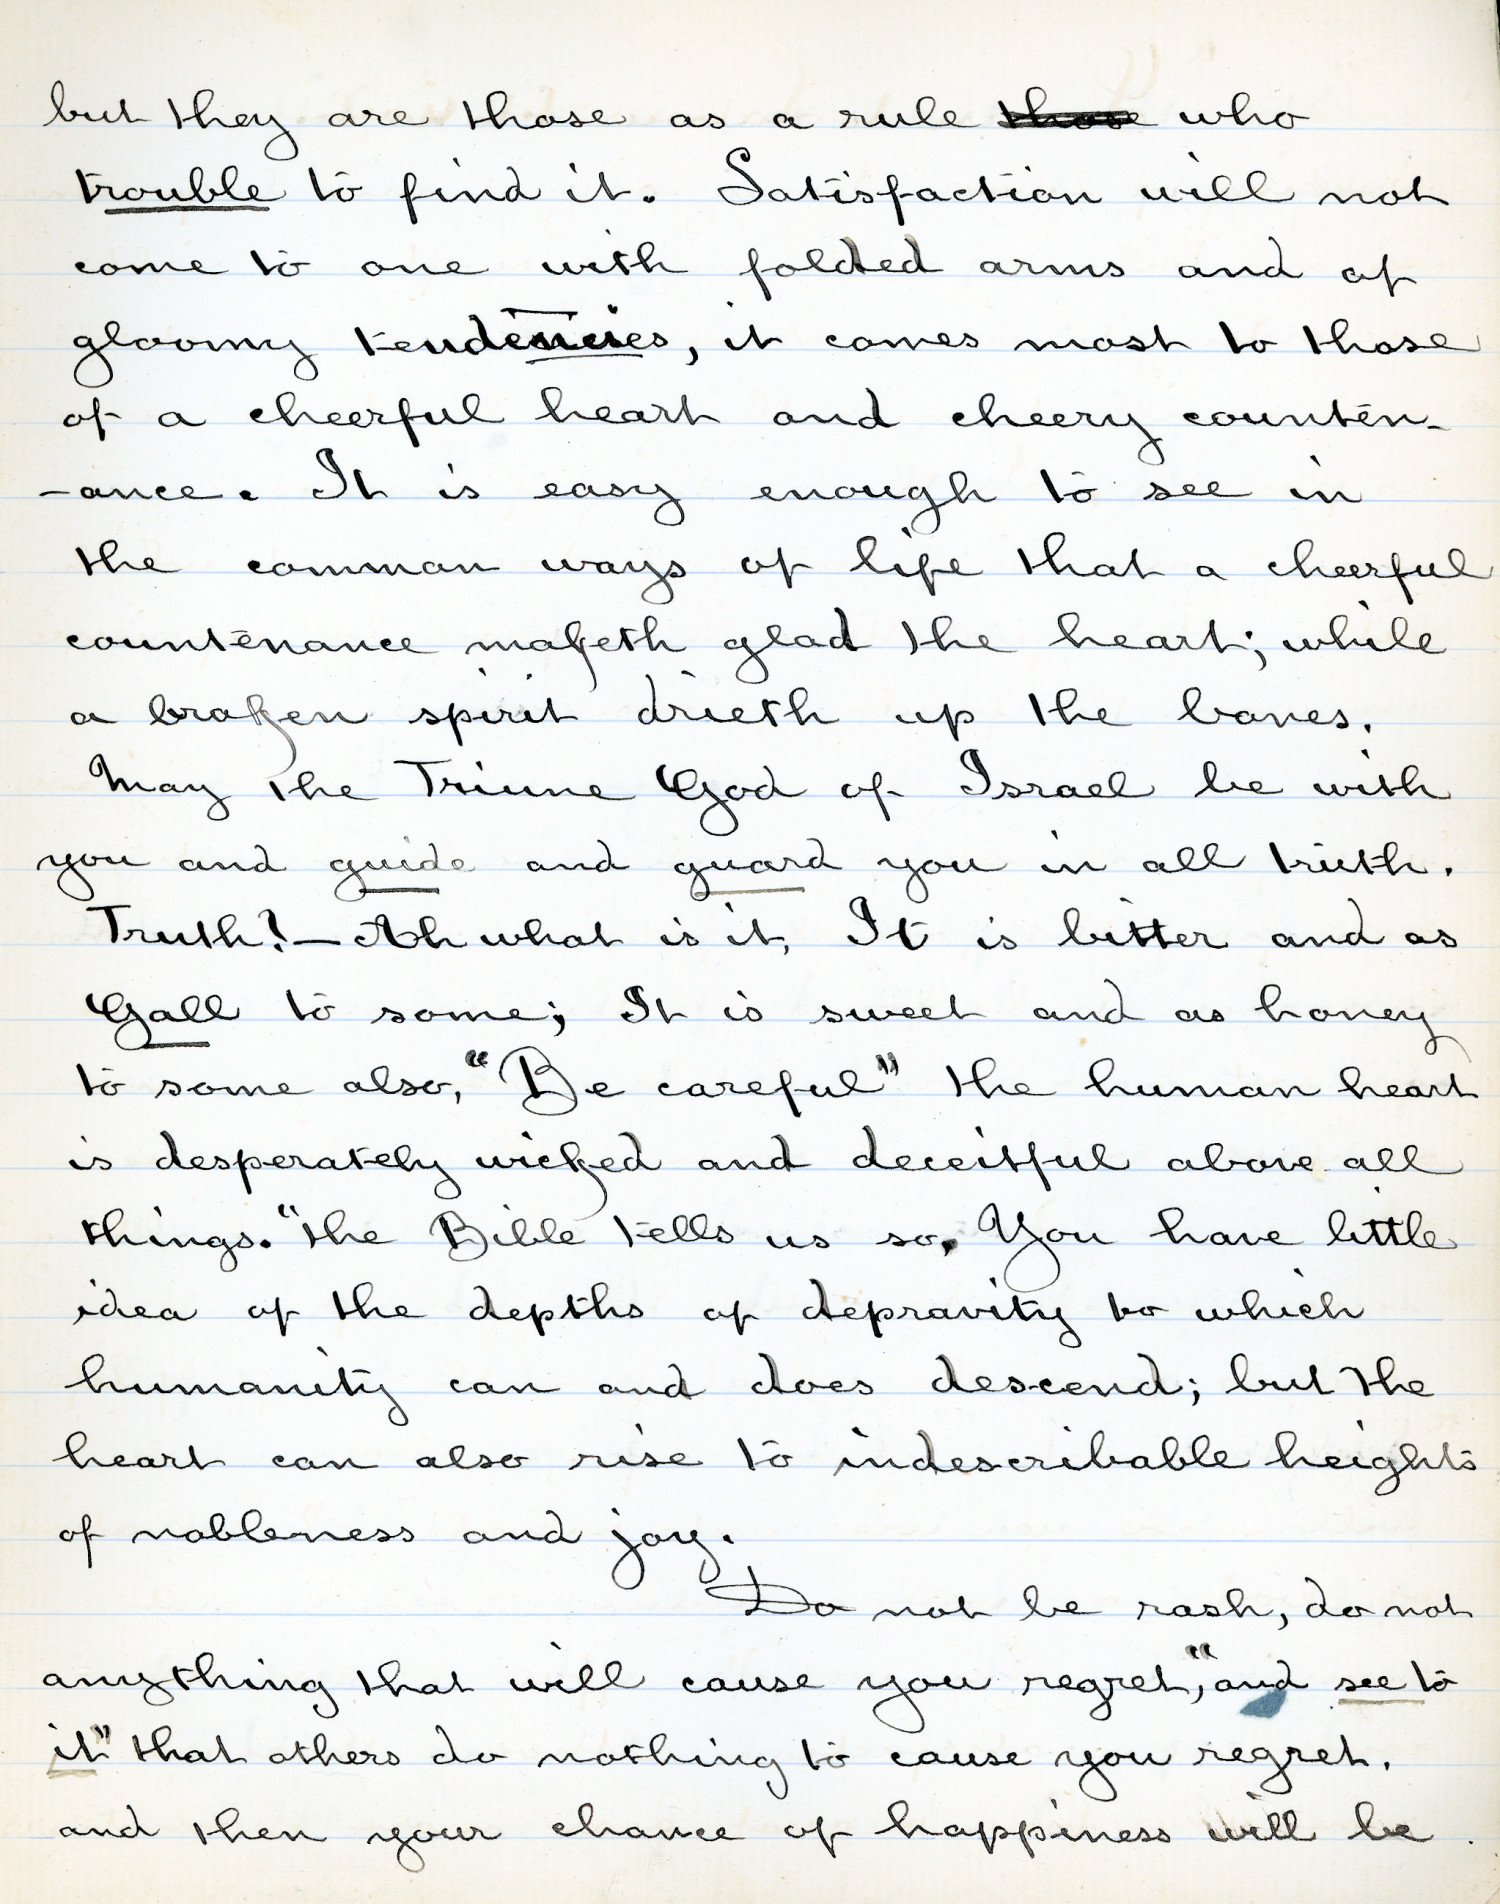 but they are those as a rule those who
trouble to find it. Satisfaction will not
come to one with folded arms and of
gloomy tendencies, it comes most to those
of a cheerful heart and cheery counten-
-ance. It is easy enough to see in
the common ways of life that a cheerful
countenance maketh glad the heart; while
a broken spirit drieth up the bones.
May the Triune God of Israel be with
you and guide and guard you in all truth.
Truth? - Ah what is it, It is bitter and as
Gall to some; It is sweet and as honey
to some also, "Be careful" the human heart
is desperately wicked and deceitful above all
things. "the Bible tells us so. You have little
idea of the depths of depravity to which
humanity can and does descend; but the
heart can also rise to indescribable heights
of nobleness and joy.
Do not be rash, do not
anything that will cause you regret, "and see to
it" that others do nothing to cause you regret.
and then your chance of happiness will be